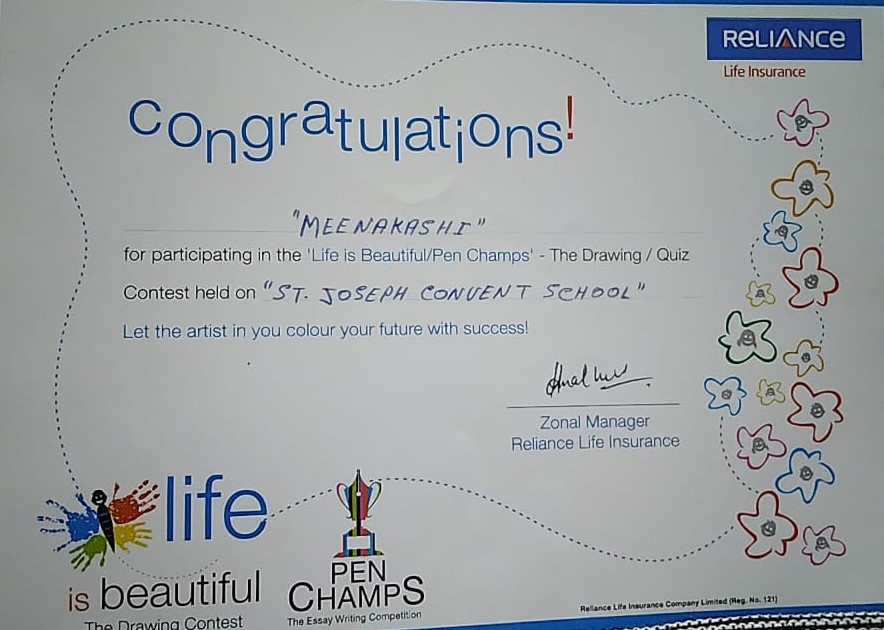 RELIANCE
Life Insurance
Congratulations!
"MEENAKASHI"
for participating in the 'Life is Beautiful/Pen Champs' - The Drawing / Quiz
Contest held on "ST. JOSEPH CONVENT SCHOOL"
Let the artist in you colour your future with success!
Zonal Manager
Reliance Life Insurance
life
is beautiful
The Drawing Contest
PEN
CHAMPS
The Essay Writing Competition
Reliance Life Insurance Company Limited (Reg. No. 121)